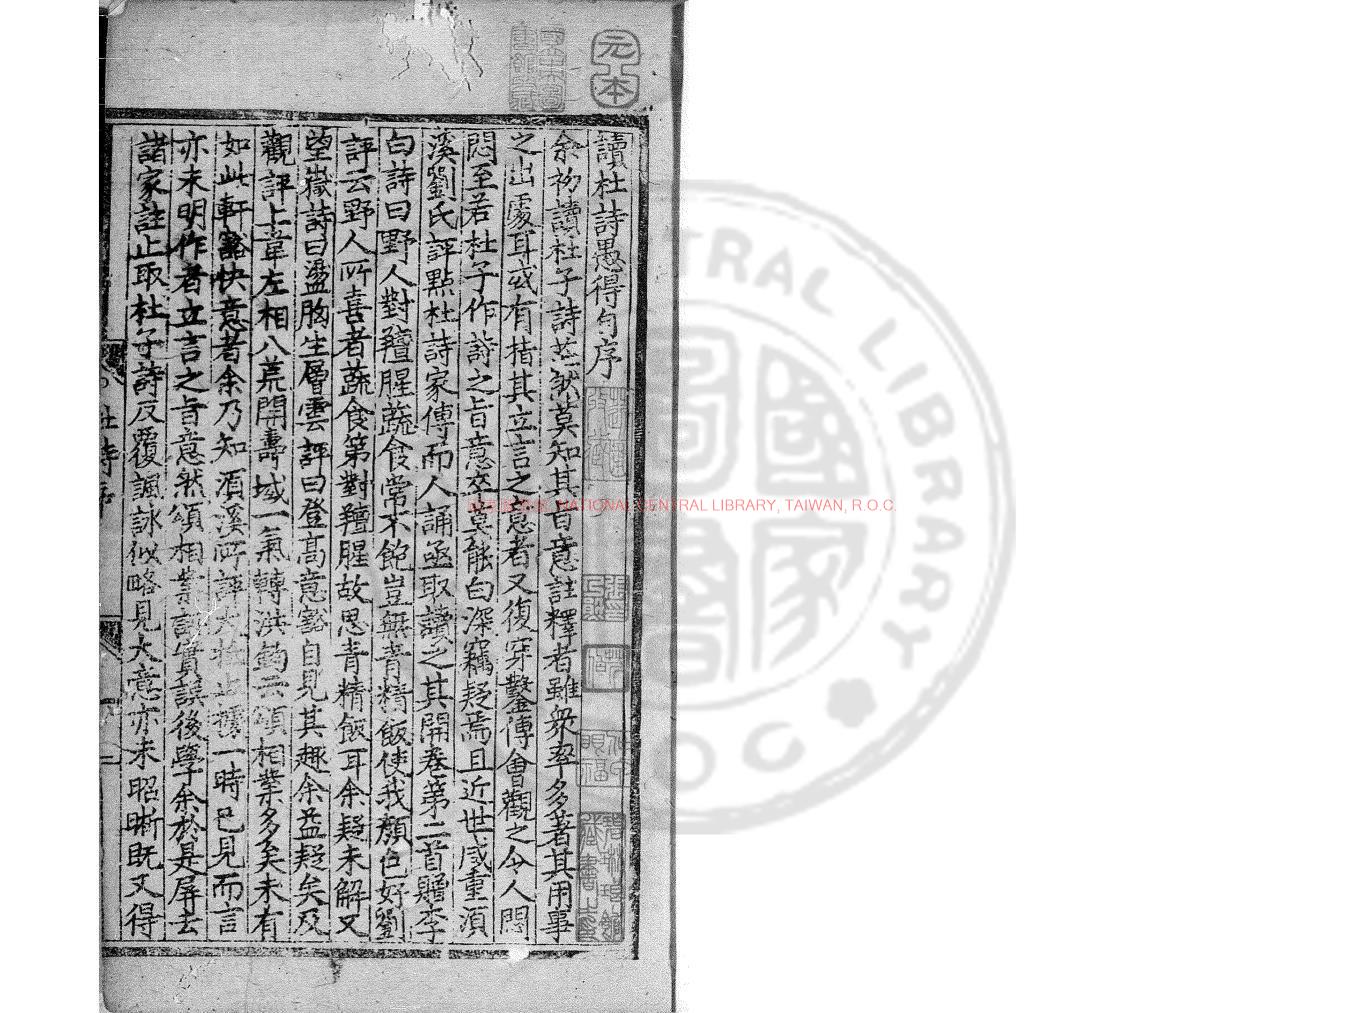 讀杜詩愚得自序
余初讀杜子詩茫然莫知其旨意註釋者雖衆率多著其用事
之出處耳或有指其立言之意者又復穿鑿傅會觀之令人悶
悶至若杜子作詩之旨意卒莫能白深竊疑焉且近世咸重湏
溪劉氏評點杜詩家傳而人誦亟取讀之其開卷第二首贈李
白詩曰野人對羶腥蔬食常不飽豈無青精飯使我顔色好劉
評云野人所喜者蔬食第對羶腥故思青精飯耳余疑未解又
望嶽詩曰盪胸生層雲評曰登高意豁自見其趣余益疑矣及
觀評上韋左相八荒開壽域一氣轉洪鈞云頌相業多矣未有
如此軒豁快意者余乃知湏溪所評大抵止據一時已見而言
亦未明作者立言之旨意然頌相業誤實誤後學余於是屏去
諸家註止取杜子詩反覆諷詠似略見大意亦未昭晰既又得
杜詩序
元本
NATIONAL CENTRAL LIBRARY, TAIWAN, R.O.C.